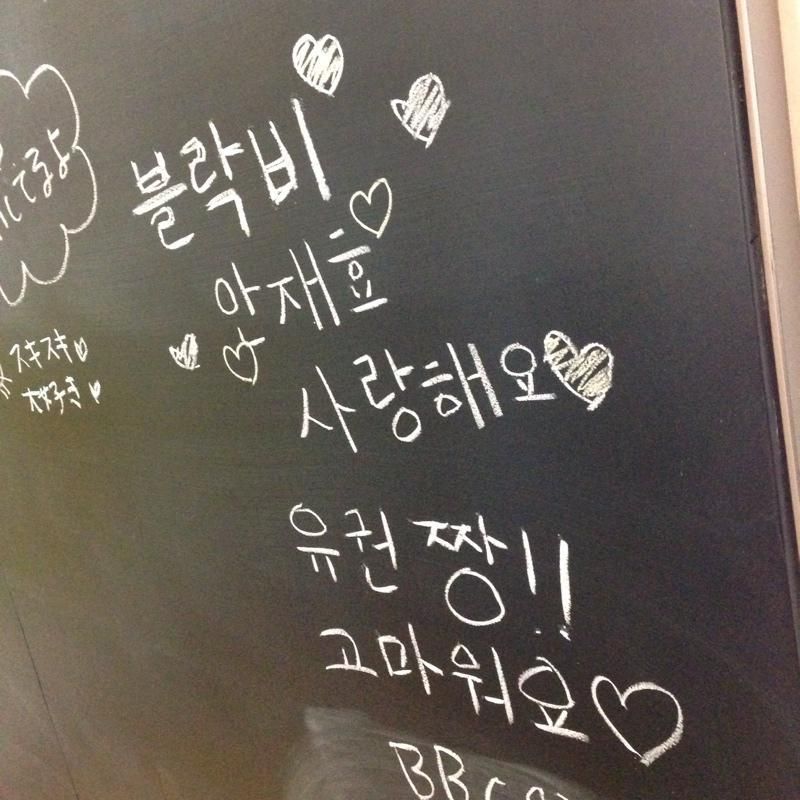 블락비
안재효
사랑해요
유권 짱!!
고마워요
BBC
てるよ
スキスキ
大好き